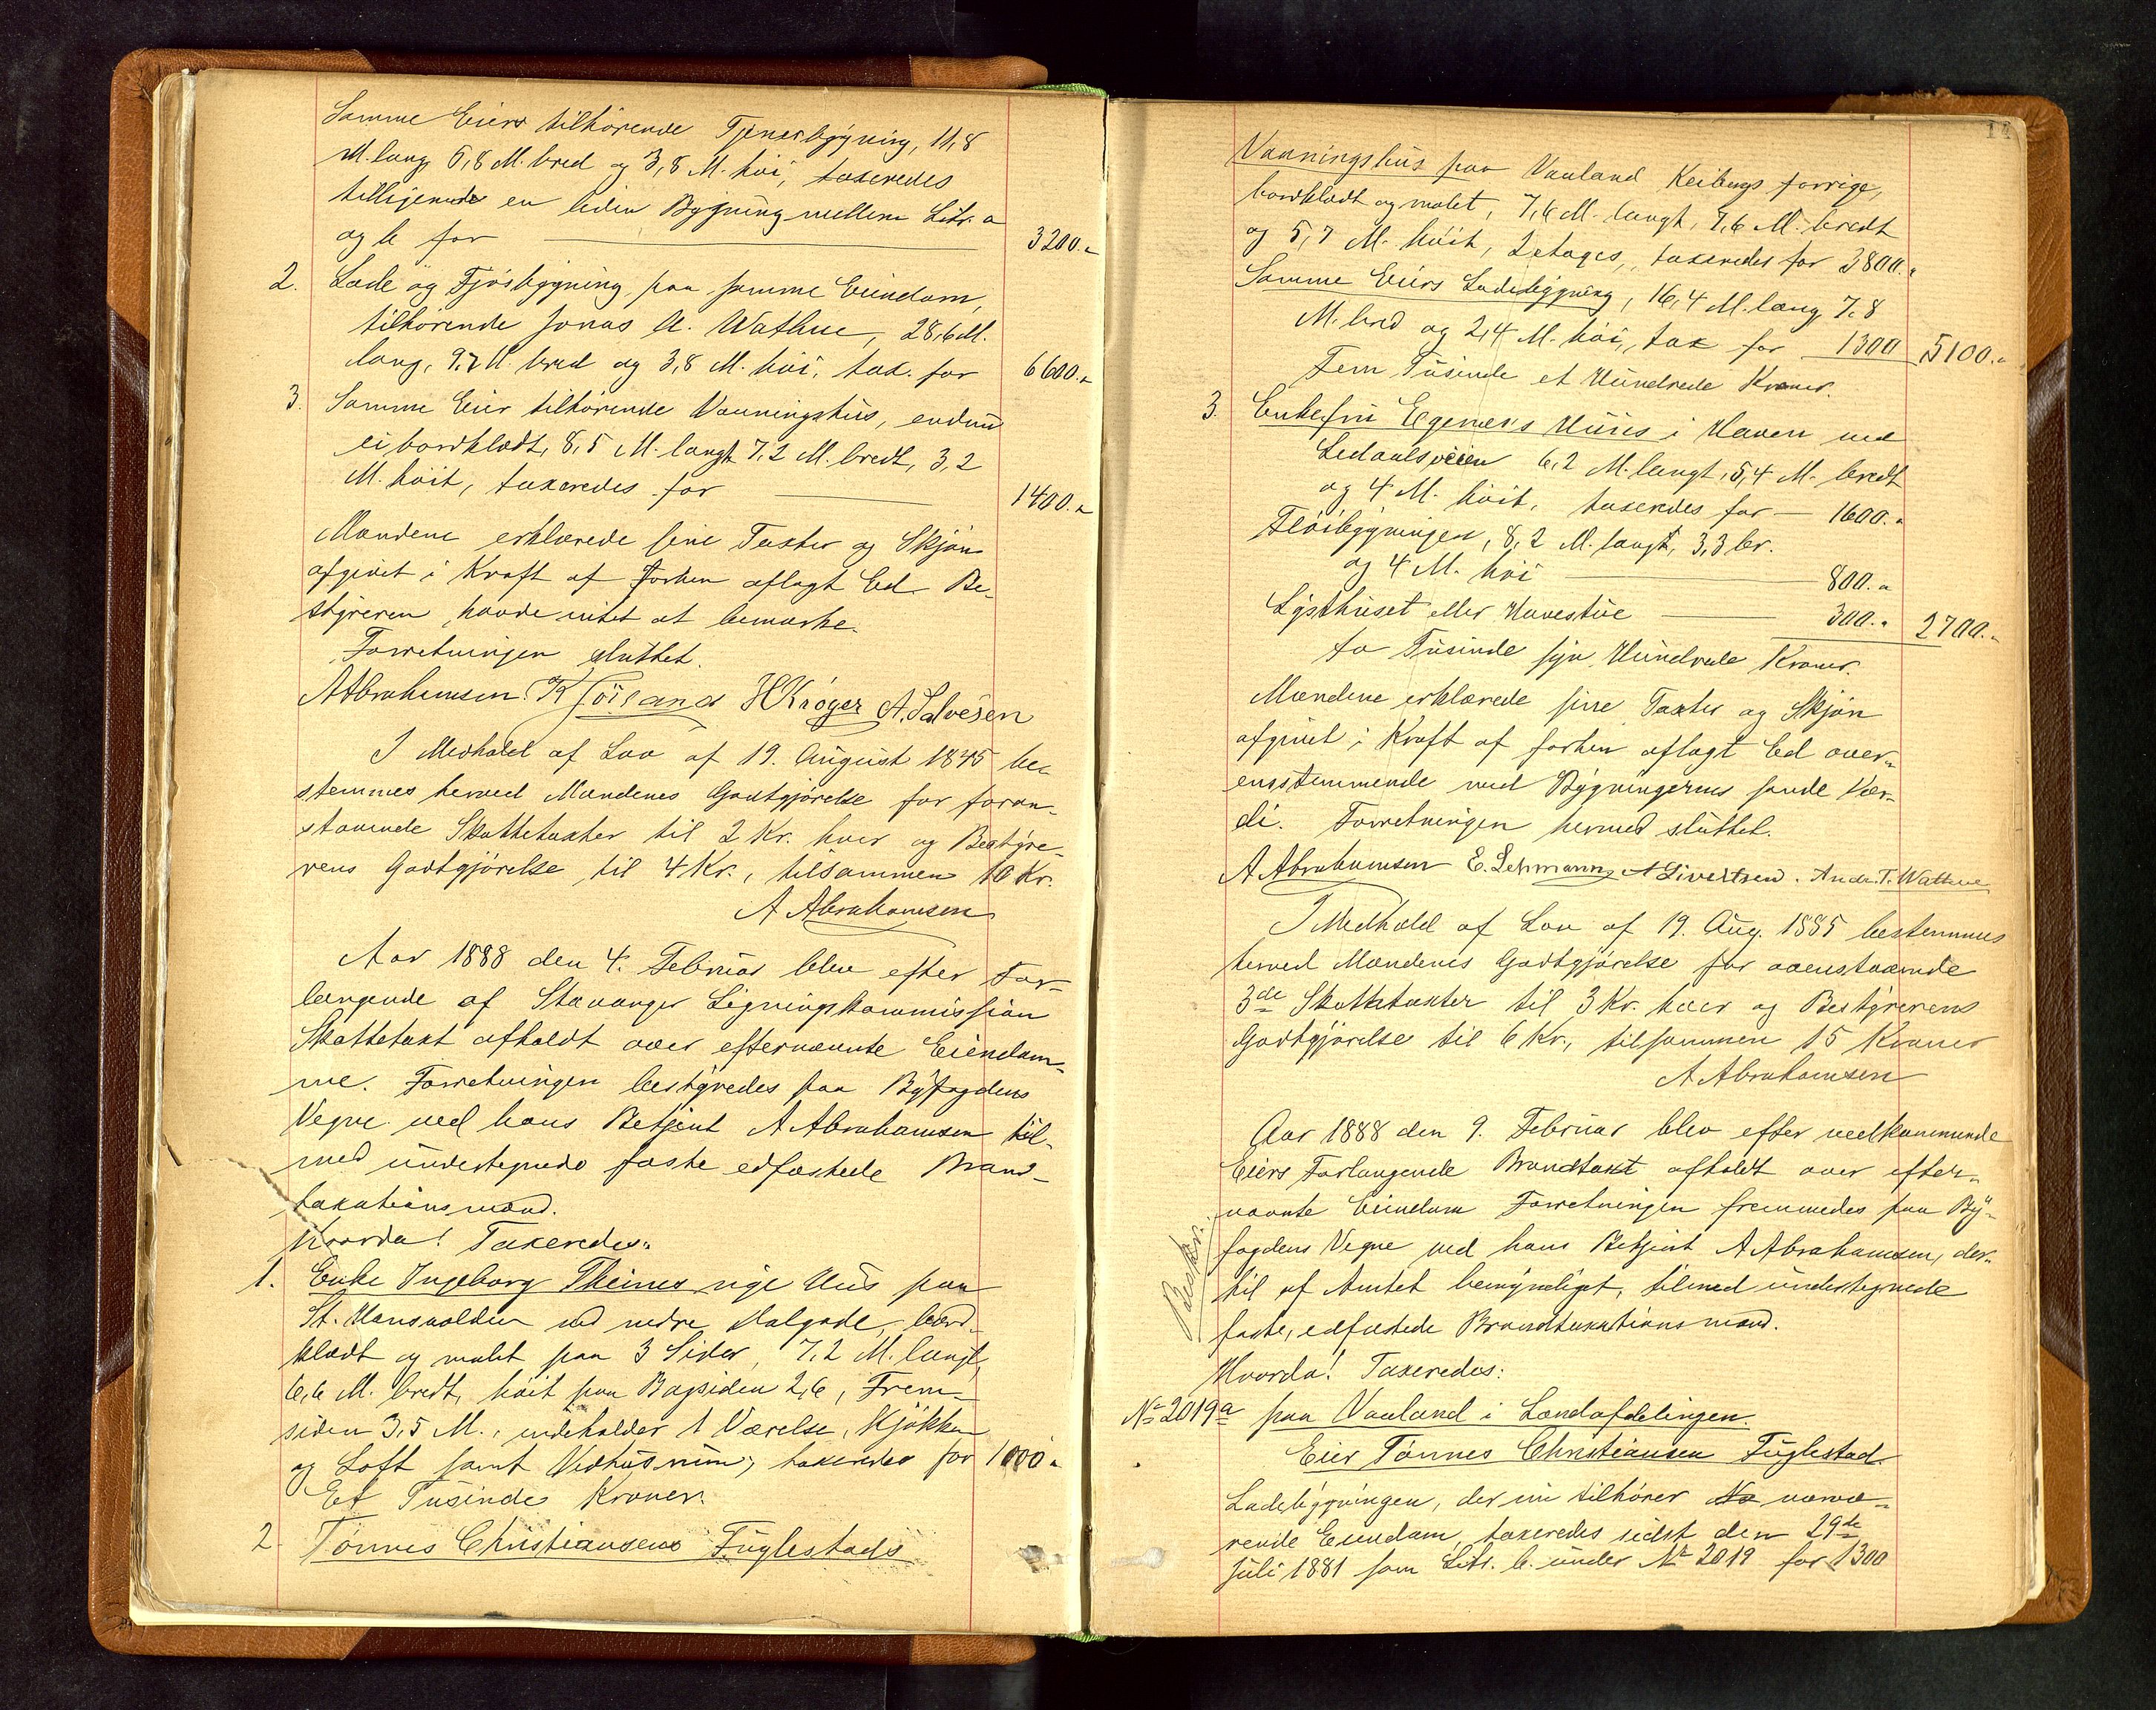 Samme Eiers tilhörende Tjenerbygning, 11,8
M. lang, 6,8 M. bred og 3,8 M. höi, taxeredes
tilligemed en liden Bygning mellem Litr. a
og b for 3200.-
2. Lade og Fjösbygning paa samme Eiendom,
tilhörende Jonas A. Wathne, 28,6 M.
lang, 9,7 M. bred og 3,8 M. höi, tax. for 6600.-
3. Samme Eier tilhörende Vaaningshus, endnu
ei bordklædt, 8,5 M. langt 7,2 M. bredt, 3,2
M. höit, taxeredes for 1400.-
Mændene erklærede sine Taxter og Skjön
afgivet i Kraft af forhen aflagt Ed. Be-
styreren havde intet at bemærke.
Forretningen sluttet.
A Abrahamsen. H Kröger A. Salvesen
I Medhold af Lov af 19. August 1845 be-
stemmes herved Mændenes Godtgjörelse for foran-
staaende Skattetaxter til 2 Kr. hver og Bestyre-
rens Godtgjörelse til 4 Kr., tilsammen 10 Kr.
A Abrahamsen
Aar 1888 den 4. Februar blev efter For-
langende af Stavanger Ligningskommission
Skattetaxt afholdt over efternævnte Eiendom-
me. Forretningen bestyredes paa Byfogdens
Vegne ved hans Betjent A Abrahamsen til-
med undertegnede faste edfæstede Brand-
taxationsmænd.
Hvorda! Taxeredes:
1. Enke Ingeborg Theines nye Hus paa
St. Hansvolden ved nedre Dalgade, bord-
klædt og malet paa 3 Sider, 7,2 M. langt,
6,6 M. bredt, höit paa Bagsiden 2,6, Frem-
siden 3,5 M., indeholder 1 Værelse, Kjökken
og Loft samt Vedhusrum, taxeredes for 1000.-
Et Tusinde Kroner.
2. Tönnes Christiansens Fuglestads
Vaaningshus paa Vauland Keibergs forrige,
bordklædt og malet, 7,6 M. langt, 7,6 M. bredt
og 5,7 M. höit, 2 etages, taxeredes for 3800.-
Samme Eiers Ladebygning, 16,4 M. lang 7,8
M. bred og 2,4 M. höi, tax for 1300 5100.-
Fem Tusinde et Hundrede Kroner.
3. Enkefru Egenæs's Huus i Haven ved
Ledaalsveien 6,2 M. langt, 5,4 M. bredt
og 4 M. höit, taxeredes for 1600.-
Flöibygningen, 8,2 M. langt, 3,3 br.
og 4 M. höi 800.-
Lysthuset eller Havestue 300.- 2700.-
to Tusinde syv Hundrede Kroner.
Mændene erklærede sine Taxter og Skjön
afgivet i Kraft af forhen aflagt Ed over-
ensstemmende med Bygningernes sande Vær-
di. Forretningen hermed sluttet.
A Abrahamsen E. Lehmann A Sivertsen. Andr. T. Wathne
I Medhold af Lov af 19. Aug. 1885 bestemmes
herved Mændenes Godtgjörelse for ovenstaaende
3de Skattetaxter til 3 Kr. hver og Bestyrerens
Godtgjörelse til 6 Kr., tilsammen 15 Kroner
A Abrahamsen
Aar 1888 den 9. Februar blev efter vedkommende
Eiers Forlangende Brandtaxt afholdt over efter-
nævnte Eiendom Forretningen fremmedes paa By-
fogdens Vegne ved hans Betjent A Abrahamsen, der-
til af Amtet bemyndiget, tilmed undertegnede
faste, edfæstede Brandtaxationsmænd.
Beskr.
Hvorda! Taxeredes:
No 2019a paa Vauland i Landafdelingen.
Eier Tönnes Christiansen Fuglestad.
Ladebygningen, der nu tilhörer No nærvæ-
rende Eiendom, taxeredes sidst den 29de
Juli 1881 som Litr. b. under No 2019 for 1300